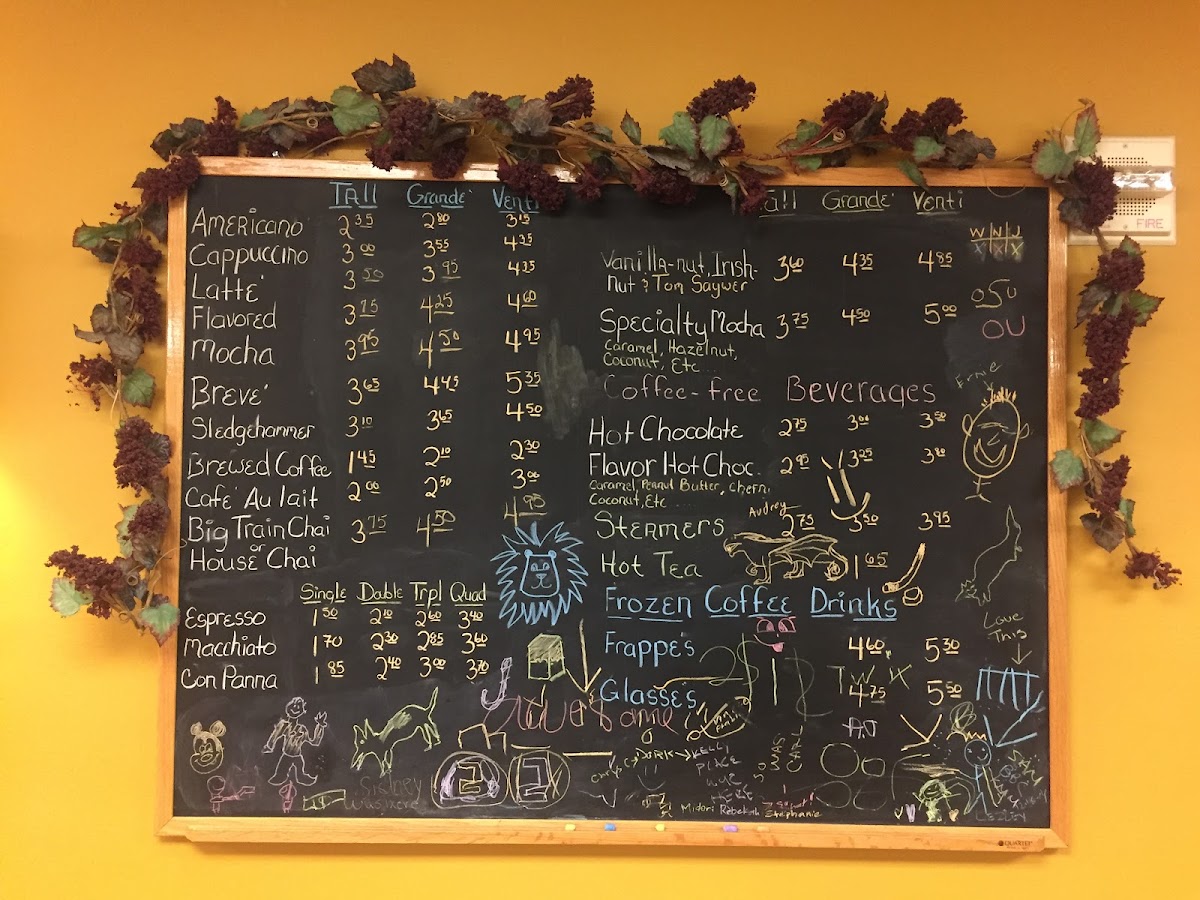 Tall Grandé Venti
Americano 2.35 2.80 3.15
Cappuccino 3.00 3.55 4.35
Latté 3.50 3.95 4.35
Flavored 3.75 4.25 4.60
Mocha 3.95 4.50 4.95
Brevé 3.65 4.45 5.35
Sledgehammer 3.10 3.65 4.50
Brewed Coffee 1.45 2.10 2.30
Café Au lait 2.00 2.50 3.00
Big Train Chai 3.75 4.50 4.95
or
House Chai
Single Doble Trpl Quad
Espresso 1.50 2.10 2.60 3.40
Macchiato 1.70 2.30 2.85 3.60
Con Panna 1.85 2.40 3.00 3.70
Tall Grandé Venti
Vanilla-nut, Irish- 3.60 4.35 4.85
nut & Tom Saywer
Specialty Mocha 3.75 4.50 5.00
Caramel, Hazelnut,
Coconut, Etc....
Coffee-free Beverages
Hot Chocolate 2.75 3.00 3.50
Flavor Hot Choc. 2.95 3.25
Caramel, Peanut Butter, Cherri,
Coconut, Etc.....
Steamers 2.75 3.50 3.95
Hot Tea 1.65
Frozen Coffee Drinks
Frappe's 4.60 5.30
Glasses 4.75 5.50
W N J
OSU
OU
Ernie
Audrey
Love
This
Sidney
KELLI
PLACE
Midori Rebekah Stephanie
QUARTET
FIRE